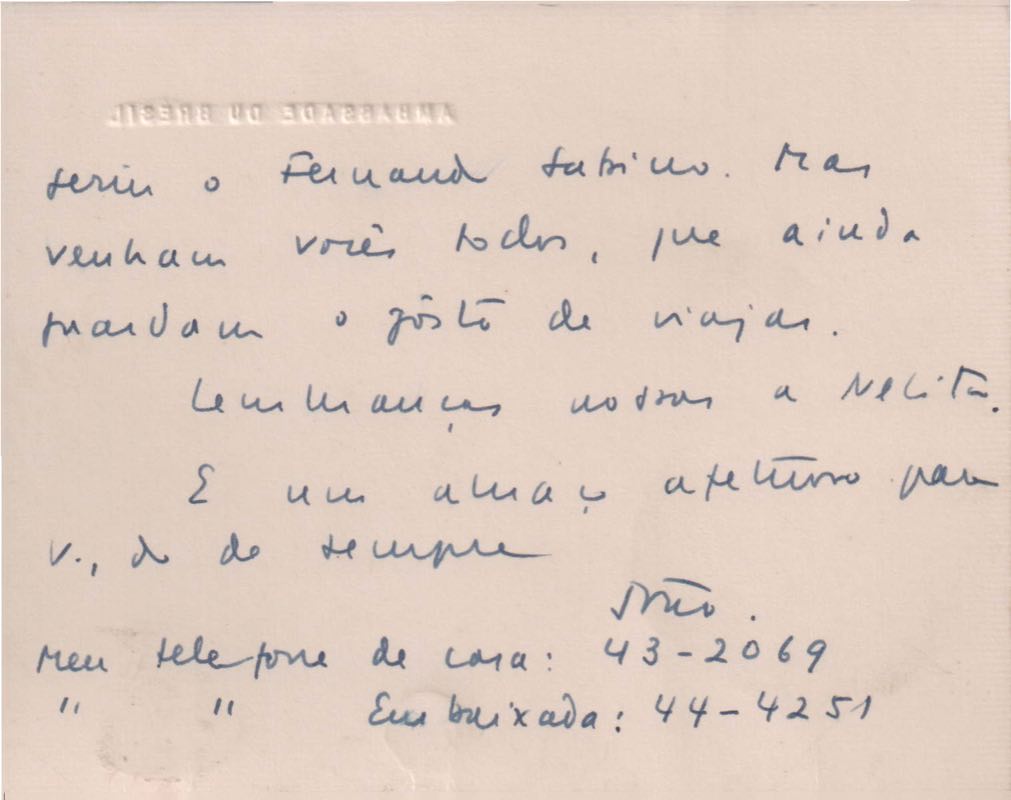 AMBASSADE DU BRESIL
seria o Fernando Sabino. Mas
venham vocês todos, que ainda
guardam o gôsto de viajar.
Lembranças nossas a Nelita.
E um abraço afetuoso para
v., do de sempre
João.
Meu telefone de casa: 43-2069
" " Embaixada: 44-4251